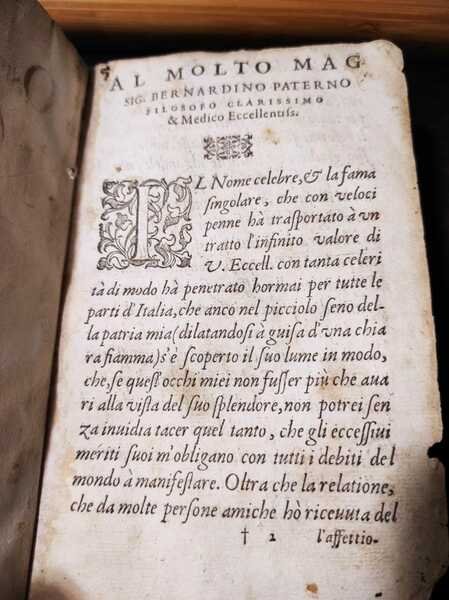 AL MOLTO MAG
SIG. BERNARDINO PATERNO
FILOSOFO CLARISSIMO
& Medico Eccellentiss.
IL Nome celebre, & la fama
singolare, che con veloci
penne hà trasportato à vn
tratto l'infinito valore di
V. Eccell. con tanta celeri
tà di modo hà penetrato hormai per tutte le
parti d'Italia, che anco nel picciolo seno del-
la patria mia (dilatandosi à guisa d'vna chia
ra fiamma) s'è scoperto il suo lume in modo,
che, se quest'occhi miei non fusser più che aua
ri alla vista del suo splendore, non potrei sen
za inuidia tacer quel tanto, che gli eccessiui
meriti suoi m'obligano con tutti i debiti del
mondo à manifestare. Oltra che la relatione,
che da molte persone amiche hò riceuuta del
† 2 l'affettio-